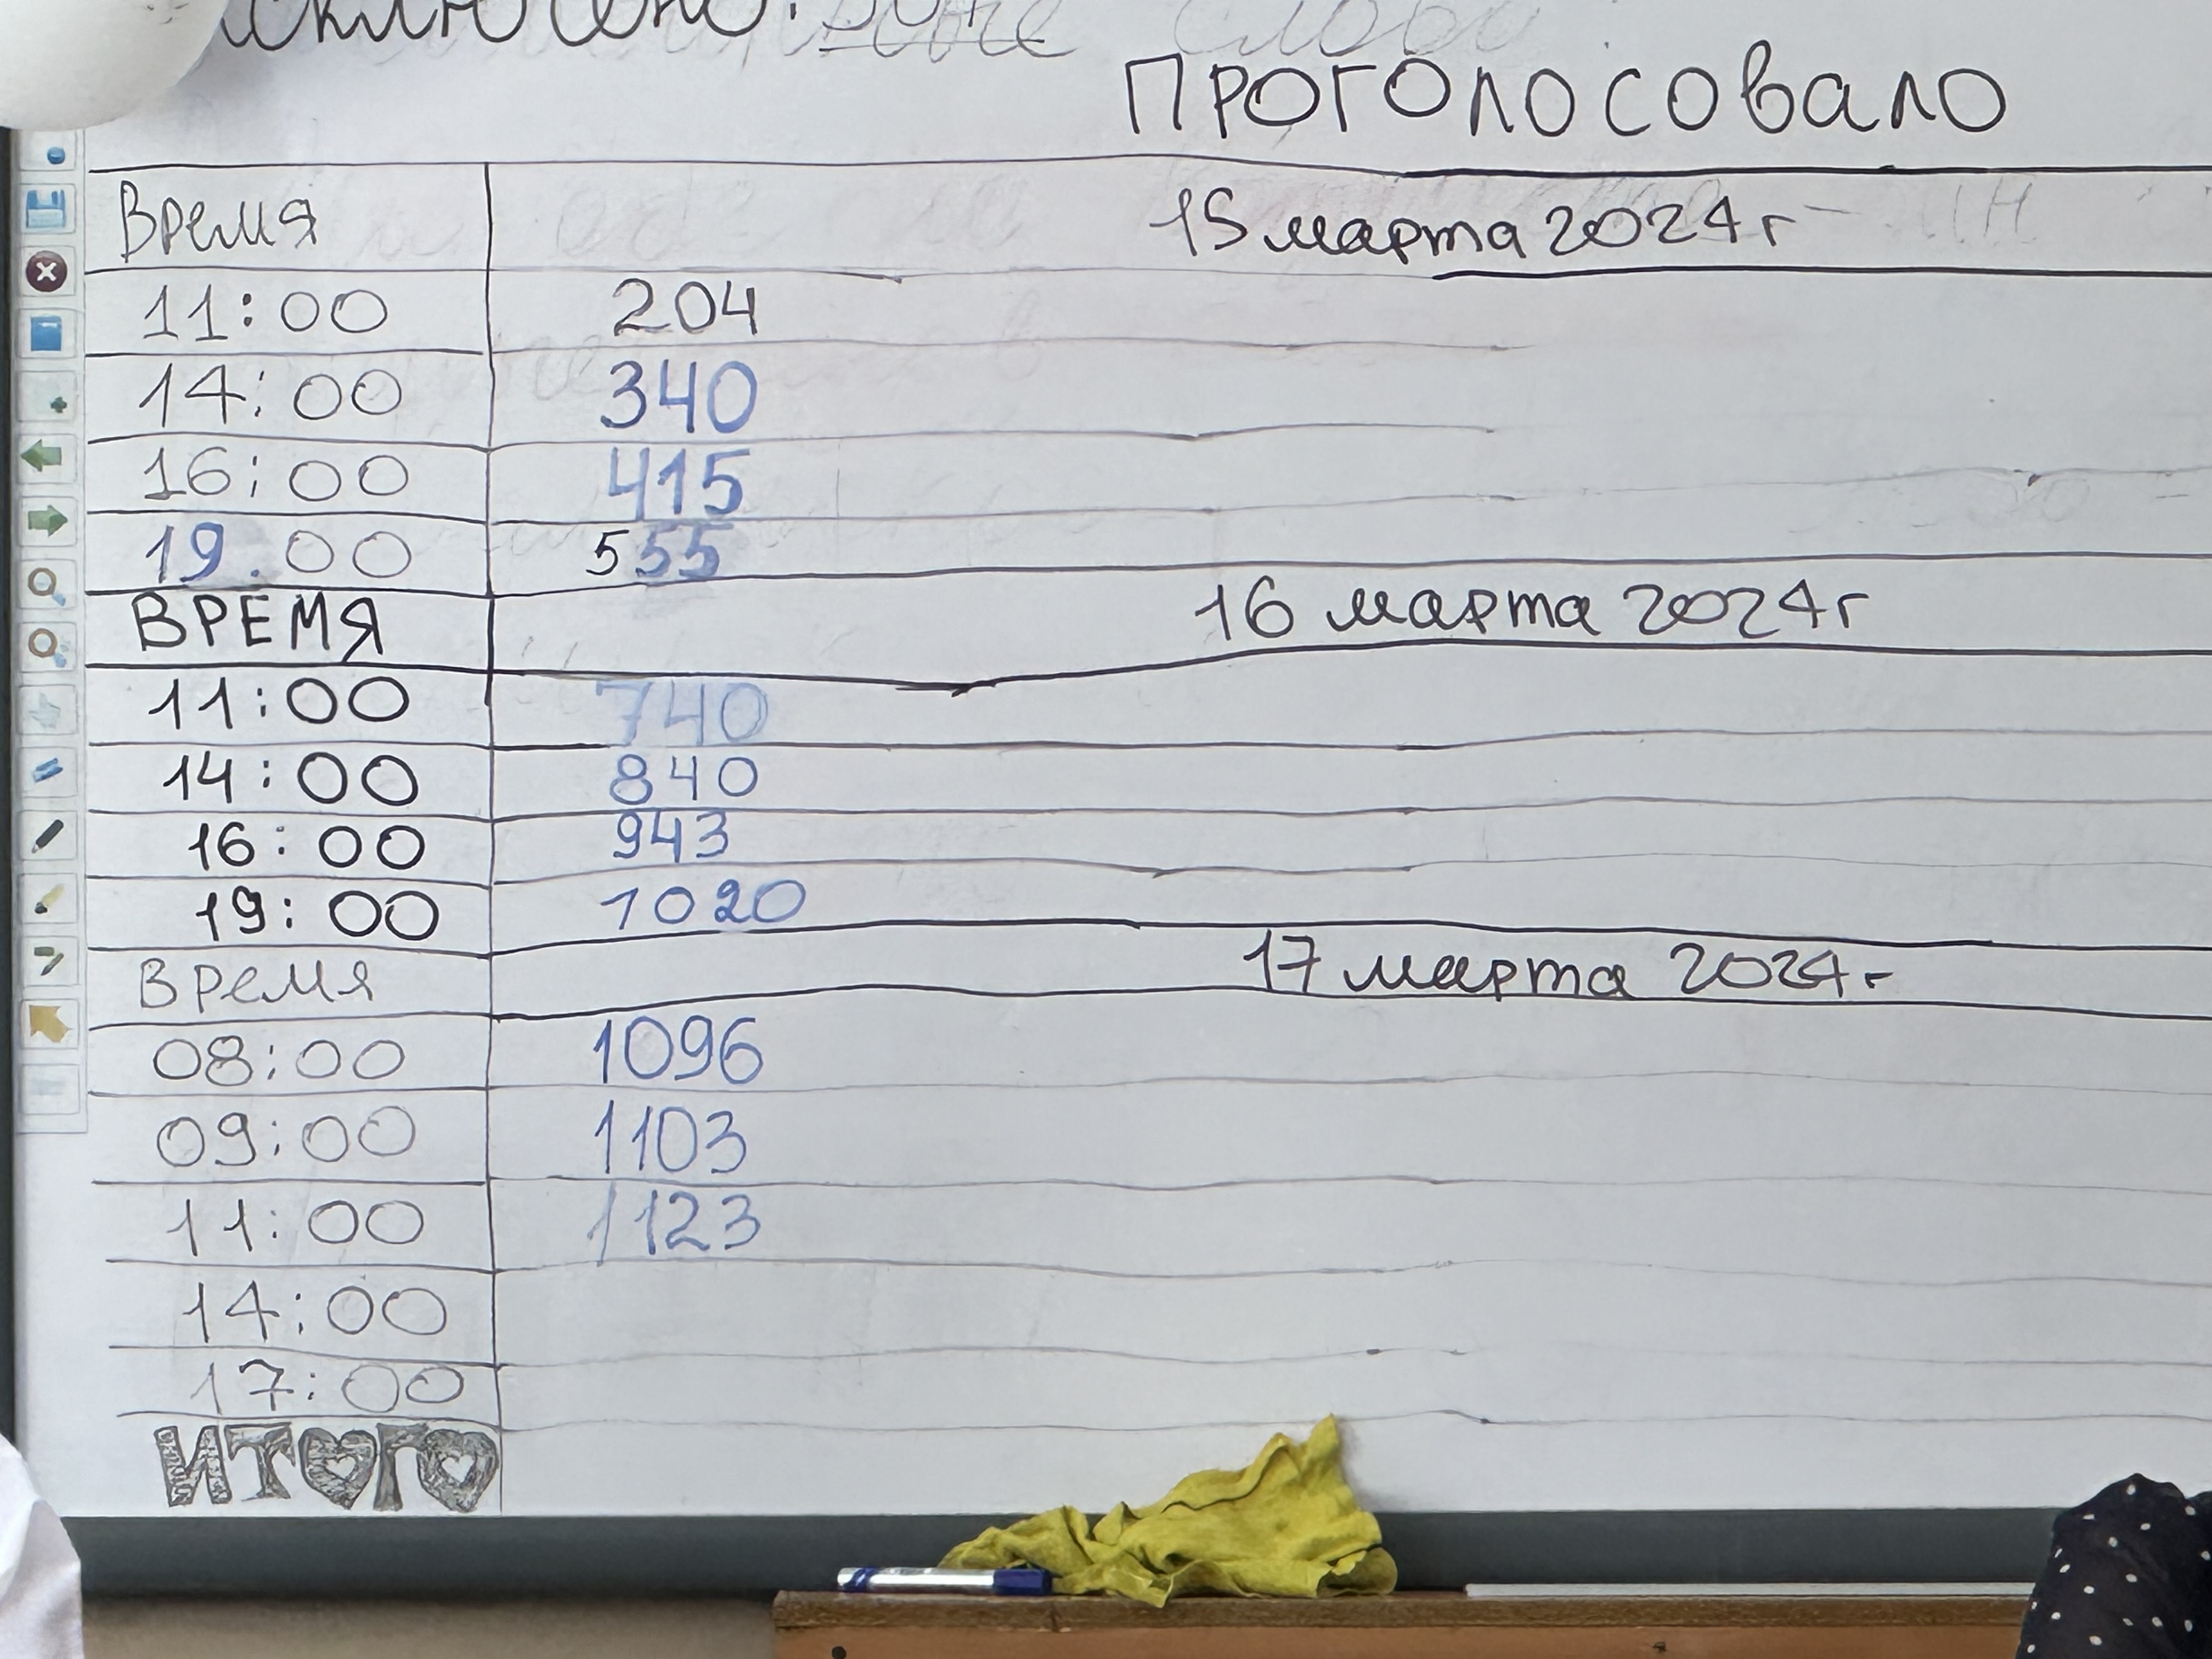 Проголосовало
Время 15 марта 2024 г
11:00 204
14:00 340
16:00 415
19.00 555
ВРЕМЯ 16 марта 2024 г
11:00 740
14:00 840
16:00 943
19:00 1020
Время 17 марта 2024 г
08:00 1096
09:00 1103
11:00 1123
14:00
17:00
ИТОГО